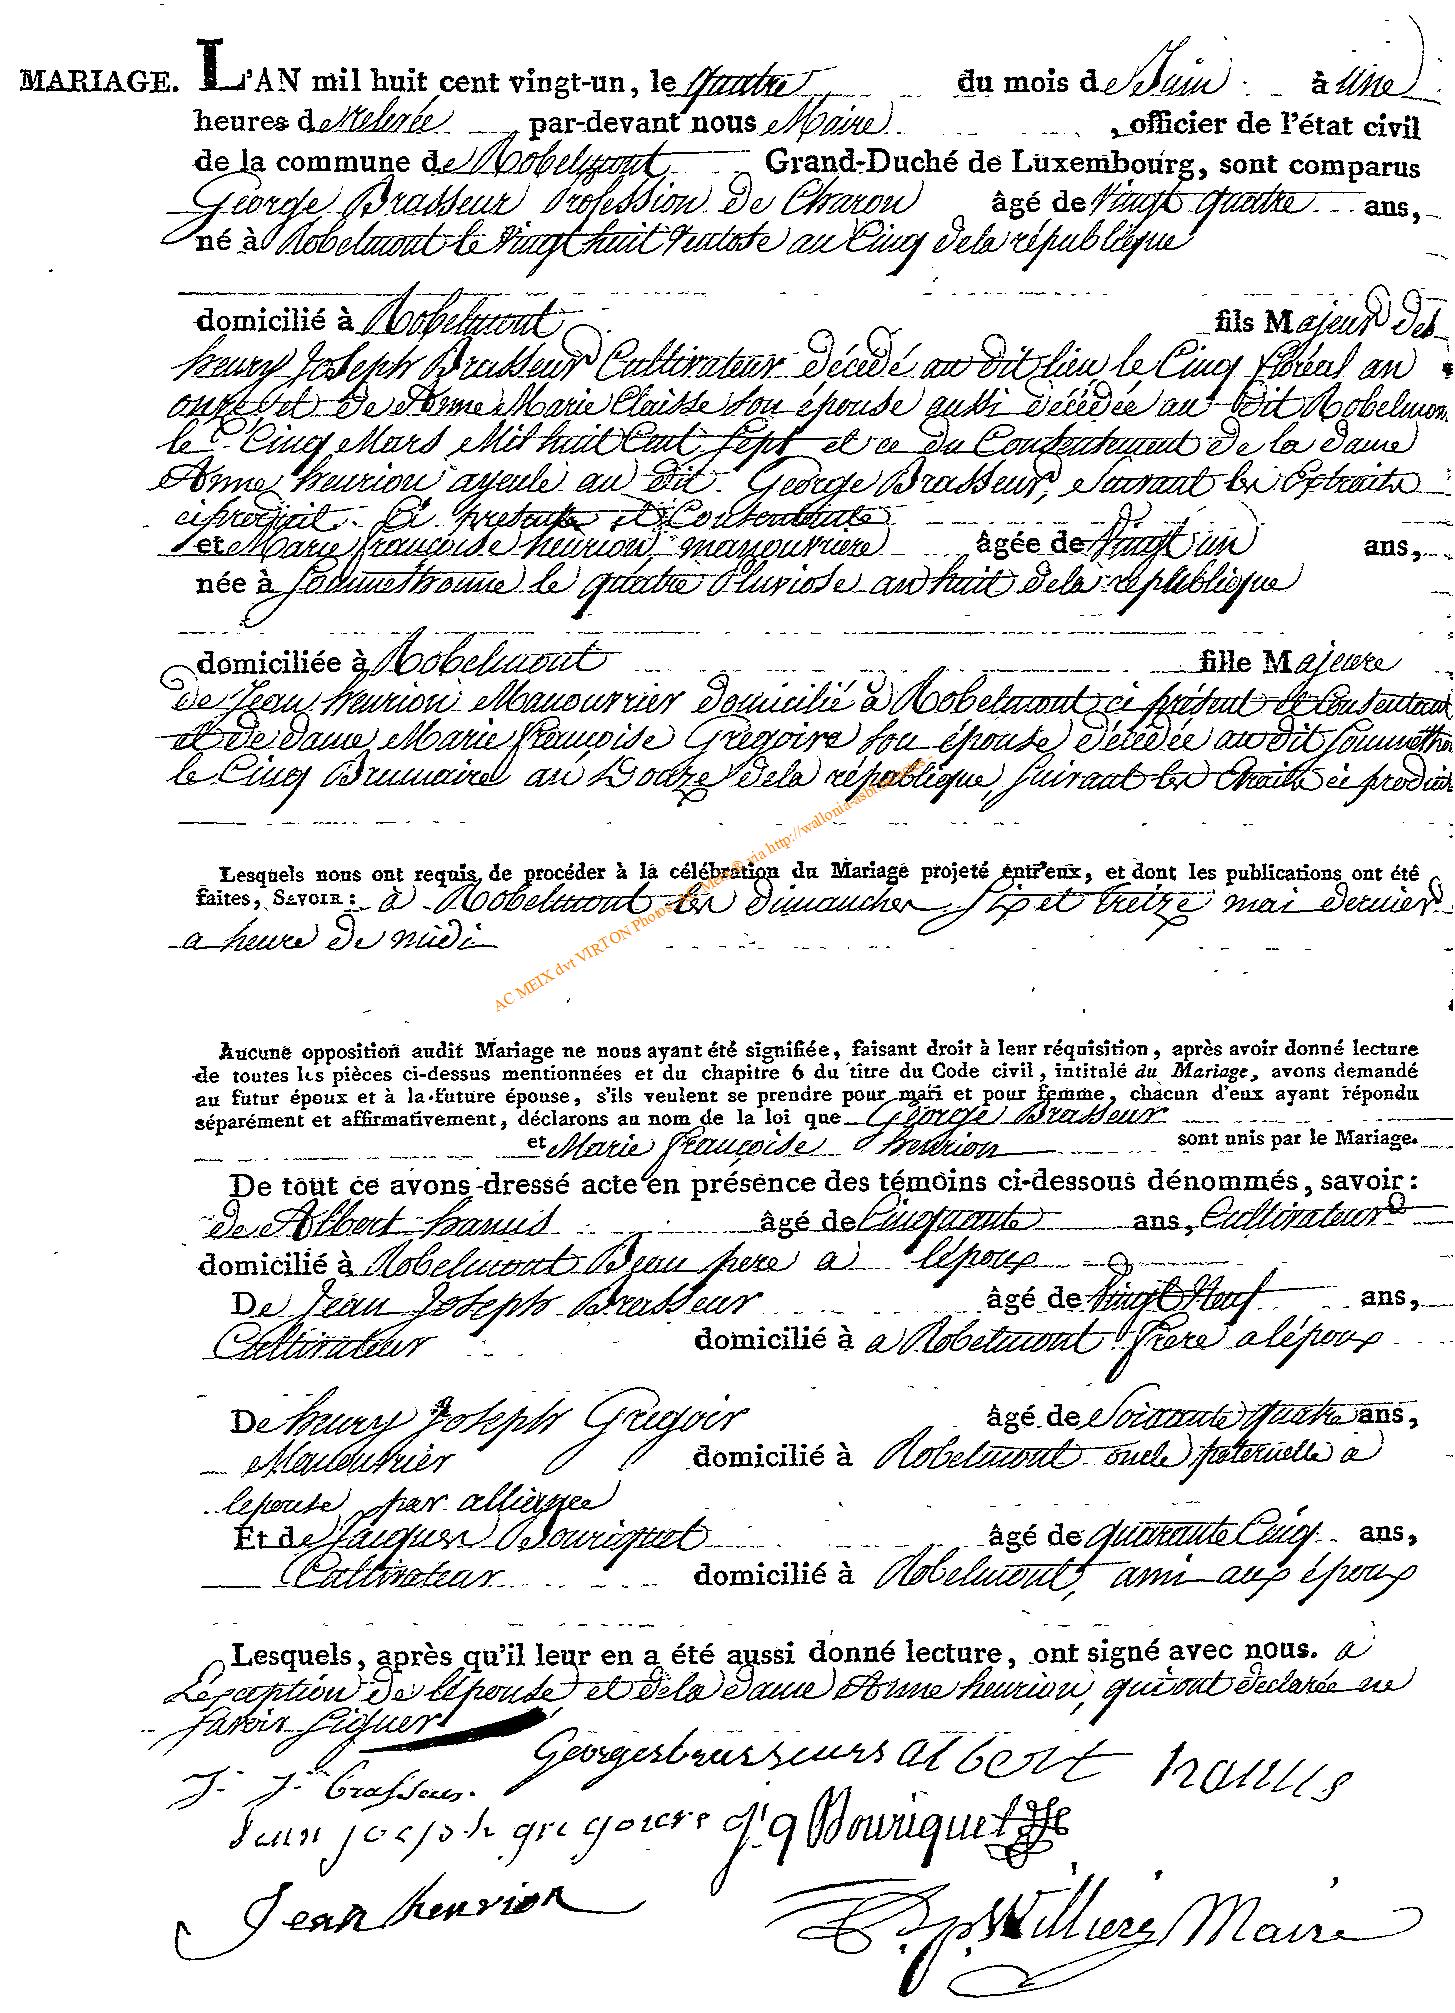 MARIAGE. L'AN mil huit cent vingt-un, le quatre du mois de Juin à une
heures de relevée par-devant nous Maire, officier de l'état civil
de la commune de Robelmont Grand-Duché de Luxembourg, sont comparus
George Brasseur Profession de Charon âgé de vingt quatre ans,
né à Robelmont le vingt huit Ventose an Cinq dela république
domicilié à Robelmont fils Majeur des
henry Joseph Brasseur Cultivateur décedé au dit lieu le Cinq floréal an
onze et de Anne Marie Claisse son épouse aussi décédée au dit Robelmon
le Cinq Mars Mil huit Cent Sept et ce du Consentement de la dame
Anne henrion ayeule au dit George Brasseur, Suivant les Extraits
ci produit Ci presente et Consentente
et Marie françoise henrion manouvriere âgée de Vingt un ans,
née à Sommethonne le quatre Pluviose an huit dela republique
domiciliée à Robelmont fille Majeure
de Jean henrion Manouvrier domicilié à Robelmont ci présent et Consentant
et de dame Marie françoise Gregoire son épouse décédée au dit Sommetho
le Cinq Brumaire an Douze dela république, Suivant les Extraits ci produit
AC MEIX dvt VIRTON Photos via http://wallonia-asbl
Lesquels nous ont requis de procéder à la célébration du Mariage projeté entr'eux, et dont les publications ont été
faites, SAVOIR: à Robelmont les dimanches Six et treize mai dernier
a heure de midi
Aucune opposition audit Mariage ne nous ayant été signifiée, faisant droit à leur réquisition, après avoir donné lecture
de toutes les pièces ci-dessus mentionnées et du chapitre 6 du titre du Code civil, intitulé du Mariage, avons demandé
au futur époux et à la future épouse, s'ils veulent se prendre pour mari et pour femme, chacun d'eux ayant répondu
séparément et affirmativement, déclarons au nom de la loi que George Brasseur
et Marie françoise henrion sont unis par le Mariage.
De tout ce avons dressé acte en présence des témoins ci-dessous dénommés, savoir:
de Albert hanus âgé de Cinquante ans, Cultivateur
domicilié à Robelmont Beau pere a lépoux
De Jean Joseph Brasseur âgé de Vingt Neuf ans,
Cultivateur domicilié à a Robelmont frere a lépoux
De henry Joseph Gregoir âgé de Soixante quatre ans,
Manouvrier domicilié à Robelmont oncle paternelle a
lepouse par alliance
Et de Jacques Bouriquet âgé de quarante Cinq ans,
Cultivateur domicilié à Robelmont, ami aux époux
Lesquels, après qu'il leur en a été aussi donné lecture, ont signé avec nous. a
Léxception de lépouse et dela dame Anne henrion, qui ont declarée ne
Savoir Signer
Georges brasseurs albert hanus
J. J. brasseur.
Jean joseph gregoire Jq Bouriquet
Jean henrion
Williers Maire